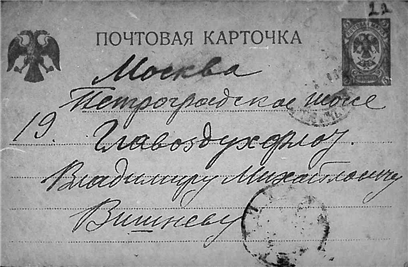 22
ПОЧТОВАЯ КАРТОЧКА
Москва
Петроградское шоссе
19. Главоздухофлот.
Владимиру Михайловичу
Вишневу